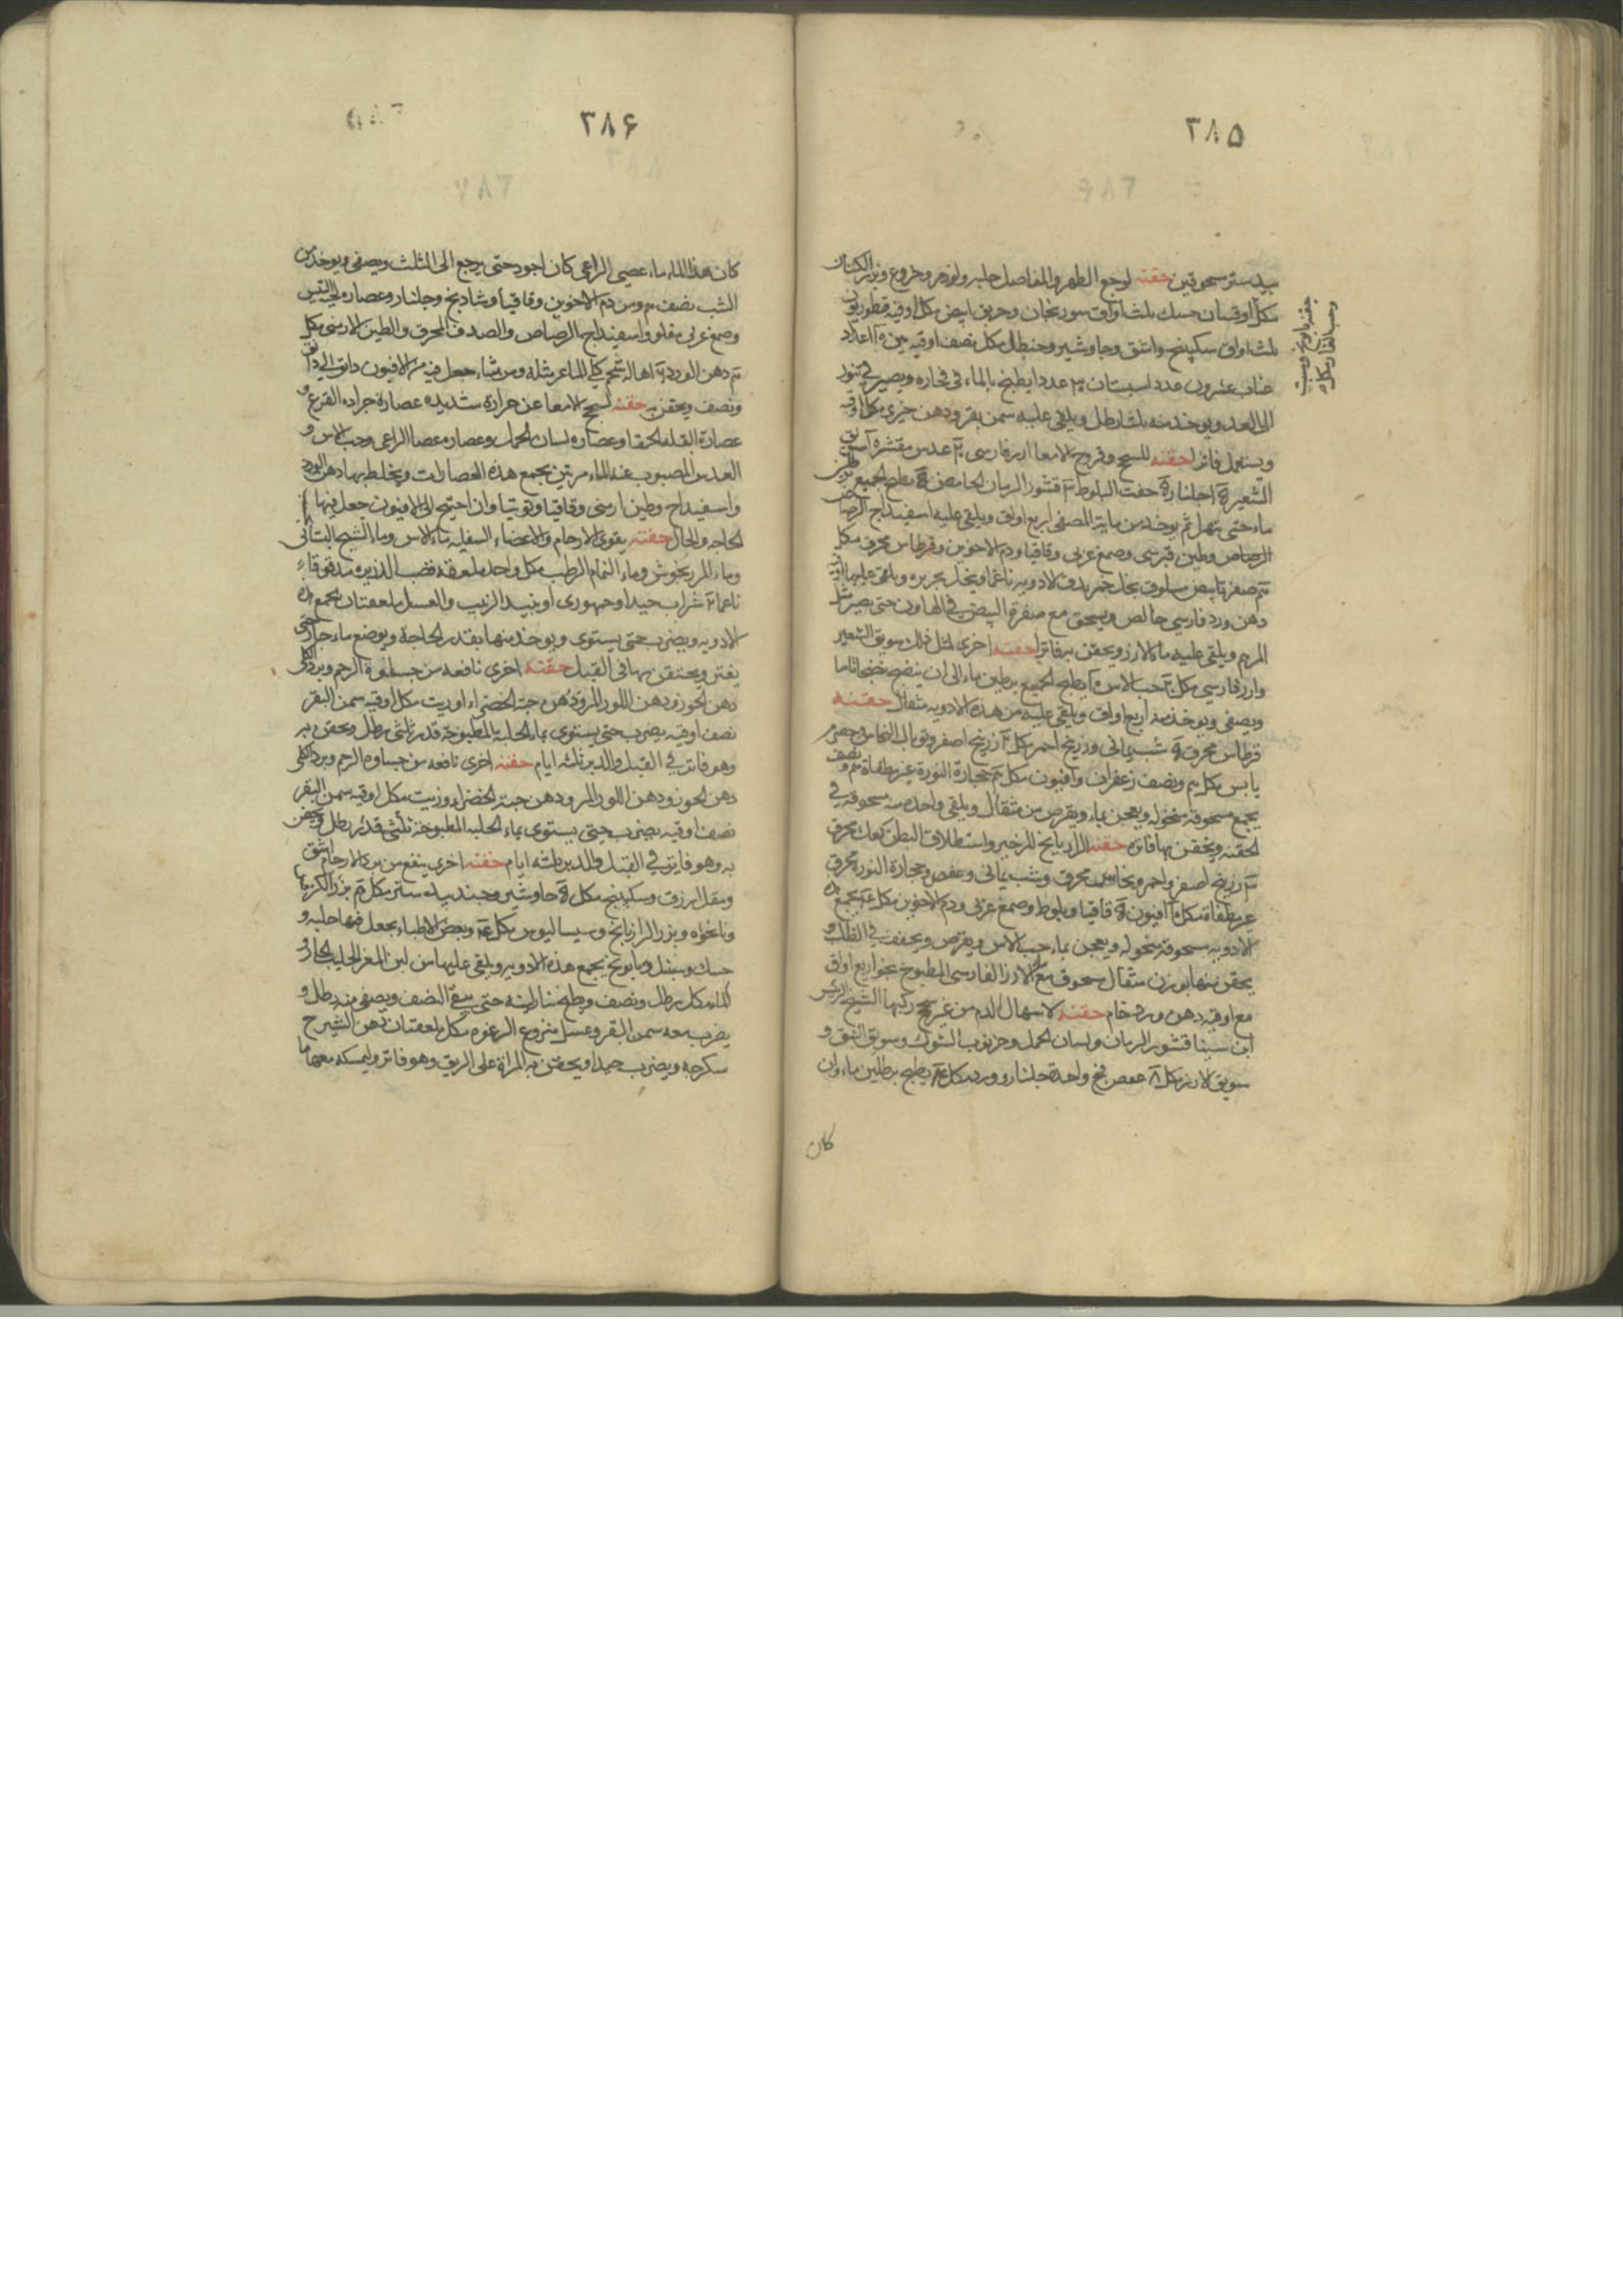 ٣٨۵
بيدستر مسحوقين حقنه لوجع الظهر والمفاصل حلبه وخروع وبزر الكتان
مكل اوقيتان حسك ثلث اواق سورنجان وخربق ابيض مكل اوقيه قنطوريون
ثلث اواق سكبينج واشق وجاوشير وحنظل مكل نصف اوقيه تين
عناب عشرون عددا سبستان عددا يطبخ بالماء في فخاره ويصير في تنور
الى الغد ويوخذ منه ثلثا رطل ويلقى عليه سمن بقر ودهن خيرى مكل اوقيه
ويستعمل فاترا حقنه للسحج وقروح الامعا ارز فارسى عدس مقشره سويق
الشعير جلنار جفت البلوط قشور الرمان الحامض يطبخ الجميع
ماء حتى يتهرا ثم يوخذ من مايه المصفى اربع اواق ويلقى عليه اسفيداج الرصاص
الرصاص وطين قبرسى وصمغ عربى وقاقيا ودم الاخوين وقرطاس محرق مكل
صفره بيض مسلوق بخل خمر يدق الادويه ناعما وينخل بحريره ويلقى عليها
دهن ورد فارسي خالص ويسحق مع صفرة البيض في الهاون حتى يصير مثل
المرهم ويلقى عليه ماء الارز ويحقن به فاترا حقنه اخرى لمثل ذلك سويق الشعير
وارز فارسي مكل حب الاس يطبخ الجميع برطلين ماء الى ان ينضج نضجا تاما
ويصفى ويوخذ منه اربع اواق ويلقى عليه من هذه الادويه مثقال حقنه
قرطاس محرق شب يمانى وزرنيخ احمر مكل زرنيخ اصفر وتوبال النحاس وحصرم
يابس مكل ونصف زعفران وافيون مكل حجارة النورة غير مطفاة ونصف
يجمع مسحوقه منخوله ويعجن بماء ويقرص من مثقال ويلقى واحده منه مسحوقه في
الحقنه ويحقن بها فاتره حقنه الزرانيخ للزحير واستطلاق البطن كعك محرق
زرنيخ اصفر واحمر ونحاس محرق وشب يمانى وعفص وحجارة النوره محرق
غير مطفاة مكل افيون قاقيا وبلوط وصمغ عربى ودم الاخوين مكل يجمع
الادويه مسحوقه منخوله ويعجن بماء حب الاس ويقرص ويجفف في الظل و
يحقن منها بوزن مثقال مسحوق مع الارز الفارسى المطبوخ نحو اربع اواق
مع اوقيه دهن ورد خام حقنه لاسهال الدم من غير سحج ركبها الشيخ الرئيس
ابن سينا قشور الرمان ولسان الحمل وخرنوب الشوك وسويق النبق و
سويق الارز مكل عفص فج واحدة جلنار وورد مكل يطبخ برطلين ماء وان
كان
٣٨۶
كان هذا الماء ماء عصى الراعى كان اجود حتى يرجع الى الثلث ويصفى ويوخذ من
الشب نصف ومن دم الاخوين وقاقيا وشادنج وجلنار وعصاره لحية التيس
وصمغ عربى مقلو واسفيداج الرصاص والصدف المحرق والطين الارمنى مكل
دهن الورد اهالة شحم كلى الماعز مثله ومن شاء جعل فيه من الافيون دانق الى دانق
ونصف ويحقن به حقنه لسحج الامعا عن حرارة شديده عصارة جراده القرع و
عصارة البقله الحمقا وعصاره لسان الحمل وعصاره عصا الراعى وحب الاس و
العدس المصبوب عنه الماء مرتين يجمع هذه العصارات ويخلط بها دهن الورد
واسفيداج وطين ارمنى وقاقيا وتوتيا وان احتيج الى الافيون جعل فيها
الحاجه والحال حقنه يقوى الارحام والاعضاء السفليه ماء الاس وماء الشيح البستانى
وماء المرزنجوش وماء النمام الرطب مكل واحد ملعقه قصب الذريره مدقوقا
ناعما شراب جيد او جمهورى او نبيد الزبيب والعسل ملعقتان يجمع
الادويه ويضرب حتى يستوى ويوخذ منها بقدر الحاجة ويوضع ماء حار حتى
يفتر ويحتقن بها فى القبل حقنه اخرى نافعه من جساوة الرحم وبرد الكلى
دهن الجوز ودهن اللوز المر ودهن حبة الخضراء او زيت مكل اوقيه سمن البقر
نصف اوقيه يضرب حتى يستوى بماء الحلبة المطبوخه قدر ثلثى رطل ويحقن به
وهو فاتر في القبل والدبر ثلثه ايام حقنه اخرى نافعه من جساوه الرحم وبرد الكلى
دهن الجوز ودهن اللوز المر ودهن حبة الخضراء وزيت مكل اوقيه سمن البقر
نصف اوقيه يضرب حتى يستوى بماء الحلبه المطبوخة ثلثى قدر رطل ويحقن
به وهو فاتر في القبل والدبر ثلثه ايام حقنه اخرى ينفع من برد الارحام اشق
ومقل ازرق وسكبينج مكل جاوشير وجندبيدستر مكل بزر الكرفس
ونانخواه وبزر الرازيانج وسيساليوس مكل وبعض الاطباء يجعل فيها حلبه و
حسك وسنبل وبابونج يجمع هذه الادويه ويلقى عليها من لبن المعز الحليب الحار و
الماء مكل رطل ونصف ويطبخ بنار لينه حتى يبقى النصف ويصفى منه رطل و
يضرب معه سمن البقر وعسل منزوع الرغوه مكل ملعقتان دهن الشيرج
سكرجه ويضرب جيدا ويحتقن به المراة على الريق وهو فاتر وليمسكه معها ما